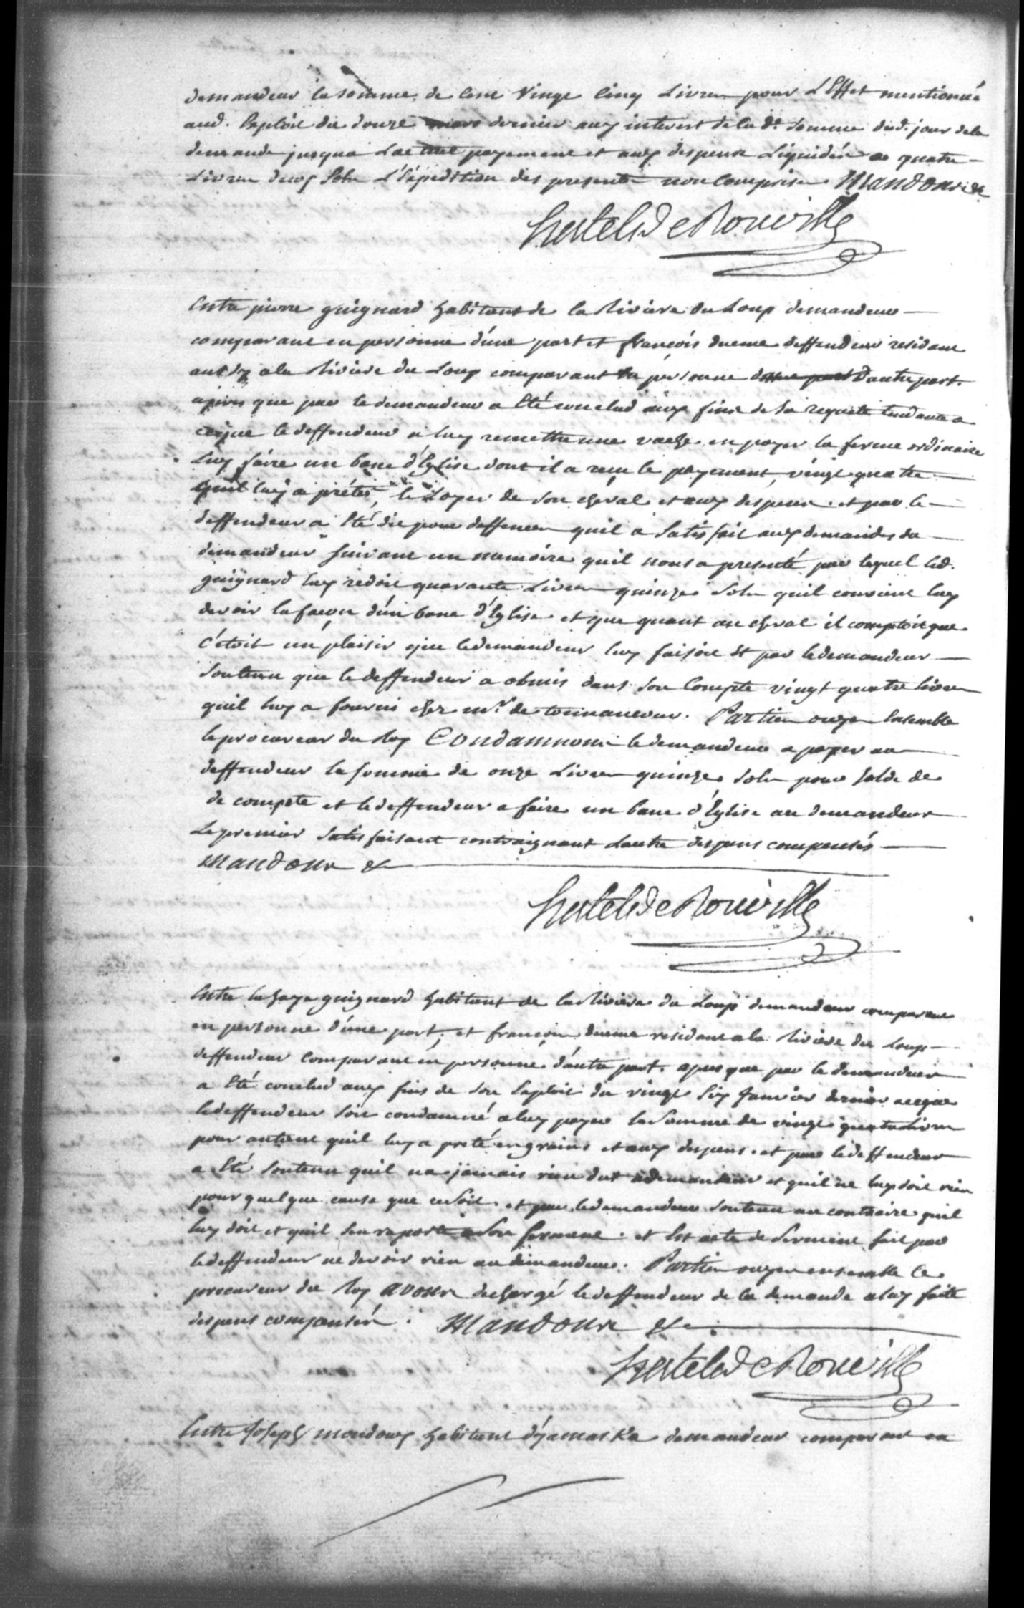 demandeur la somme de Cent Vingt Cinq Livres pour L'Effet mentionné
aud. Exploit du douze mars dernier aux interest de la de. somme dud. jour de la
demande jusqua Lactuel payement et aux despens Liquidés a quatre
Livres deux Sols L'Expedition des presente non Comprise Mandons &c
Hertel De Rouville
Entre pierre guignard habitant de la Riviere du Loup demandeur
comparant en personne d'une part et françois dueme deffendeur residant
aussy a la Riviere du Loup comparant en personne D'autre part.
apres que par le demandeur a Eté conclud aux fins de sa requete tendante a
ceque le deffendeur a luy remettre une vache en payer la ferme ordinaire
Luy faire un banc d'Eglise dont il a reçu le payement, vingt quatre
quil luy a prétés, le Loyer de son cheval et aux despens. et par le
deffendeur a Eté dit pour deffences quil a Satisfait aux demandes du
demandeur suivant un memoire quil nous a presenté par lequel led.
guignard luy redoit quarante Livres quinze Sols quil convient luy
devoir la façon d'un banc d'Eglise et que quant au cheval il comptoit que
c'étoit un plaisir que le demandeur luy faisoit Et par le demandeur
Soutenu que le deffendeur a obmis dans son Compte vingt quatre livres
quil luy a fourni chez mr. de tonnancour. Parties ouyes Ensemble
le procureur du Roy Condamnons le demandeur a payer au
deffendeur la somme de onze Livres quinze Sols pour solde de
de compte et le deffendeur a faire un banc d'Eglise au demandeur
Le premier Satisfaisant contraignant Lautre despens compensés
Mandons &
Hertel De Rouville
Entre la haye guignard habitant de la Riviere du Loup demandeur comparant
en personne d'une part, et françois dueme residant a la Riviere du Loup
deffendeur comparant en personne d'autre part. apres que par le demandeur
a Eté conclud aux fins de son Exploit du vingt Six Janvier dernier aceque
le deffendeur soit condamné a luy payer la Somme de vingt quatre Livres
pour autant quil luy a preté en grains et aux despens. et par le deffendeur
a Eté Soutenu quil na jamais rien dut au demandeur et quil ne luy doit rien
pour quelque cause que ce Soit. et par le demandeur Soutenu au contraire quil
luy doit et quil Sen raporte a Son Serment. et Est acte de Serment fait par
le deffendeur ne devoir rien au demandeur. Parties ouyes ensemble le
procureur du Roy avons dechargé le deffendeur de la demande a luy faitte
despens compensés. Mandons &c
Hertel De Rouville
Entre Joseph habitant d'yamaska demandeur comparant en